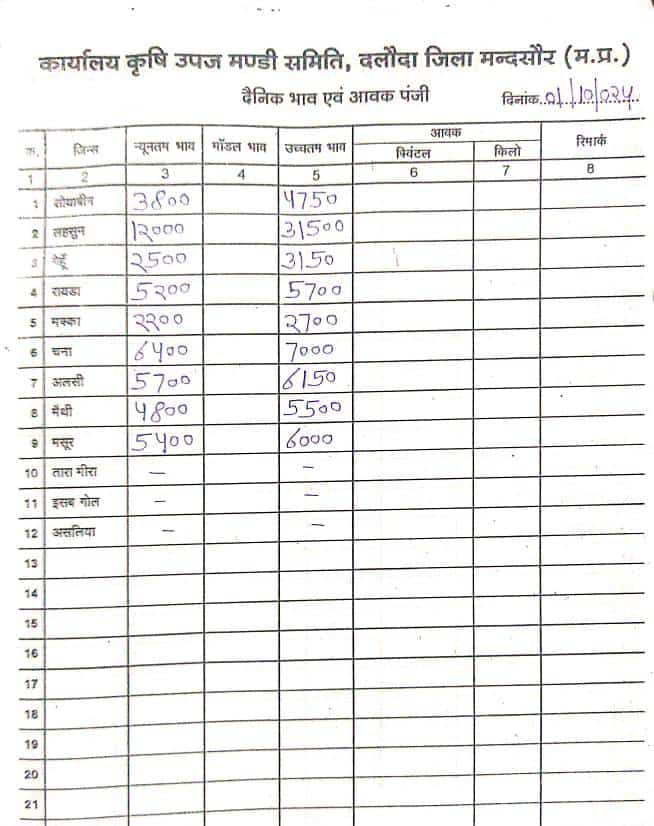 कार्यालय कृषि उपज मण्डी समिति, दलौदा जिला मन्दसौर (म.प्र.)
दैनिक भाव एवं आवक पंजी
दिनांक..01/10/024
क. जिन्स न्यूनतम भाव मॉडल भाव उच्चतम भाव आवक रिमार्क
क्विंटल किलो
1 2 3 4 5 6 7 8
1 सोयाबीन 3800 4750
2 लहसुन 12000 31500
3 गेहूँ 2500 3150
4 रायडा 5200 5700
5 मक्का 2200 2700
6 चना 6400 7000
7 अलसी 5700 6150
8 मैथी 4800 5500
9 मसूर 5400 6000
10 तारा मीरा – –
11 इसब गोल – –
12 असलिया – –
13
14
15
16
17
18
19
20
21